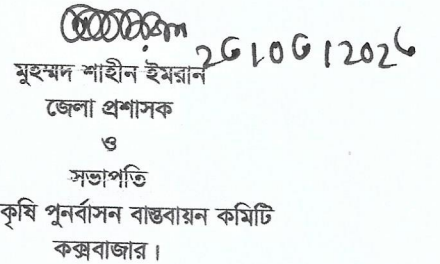 মুহম্মদ শাহীন ইমরান
জেলা প্রশাসক
ও
সভাপতি
কৃষি পুনর্বাসন বাস্তবায়ন কমিটি
কক্সবাজার।